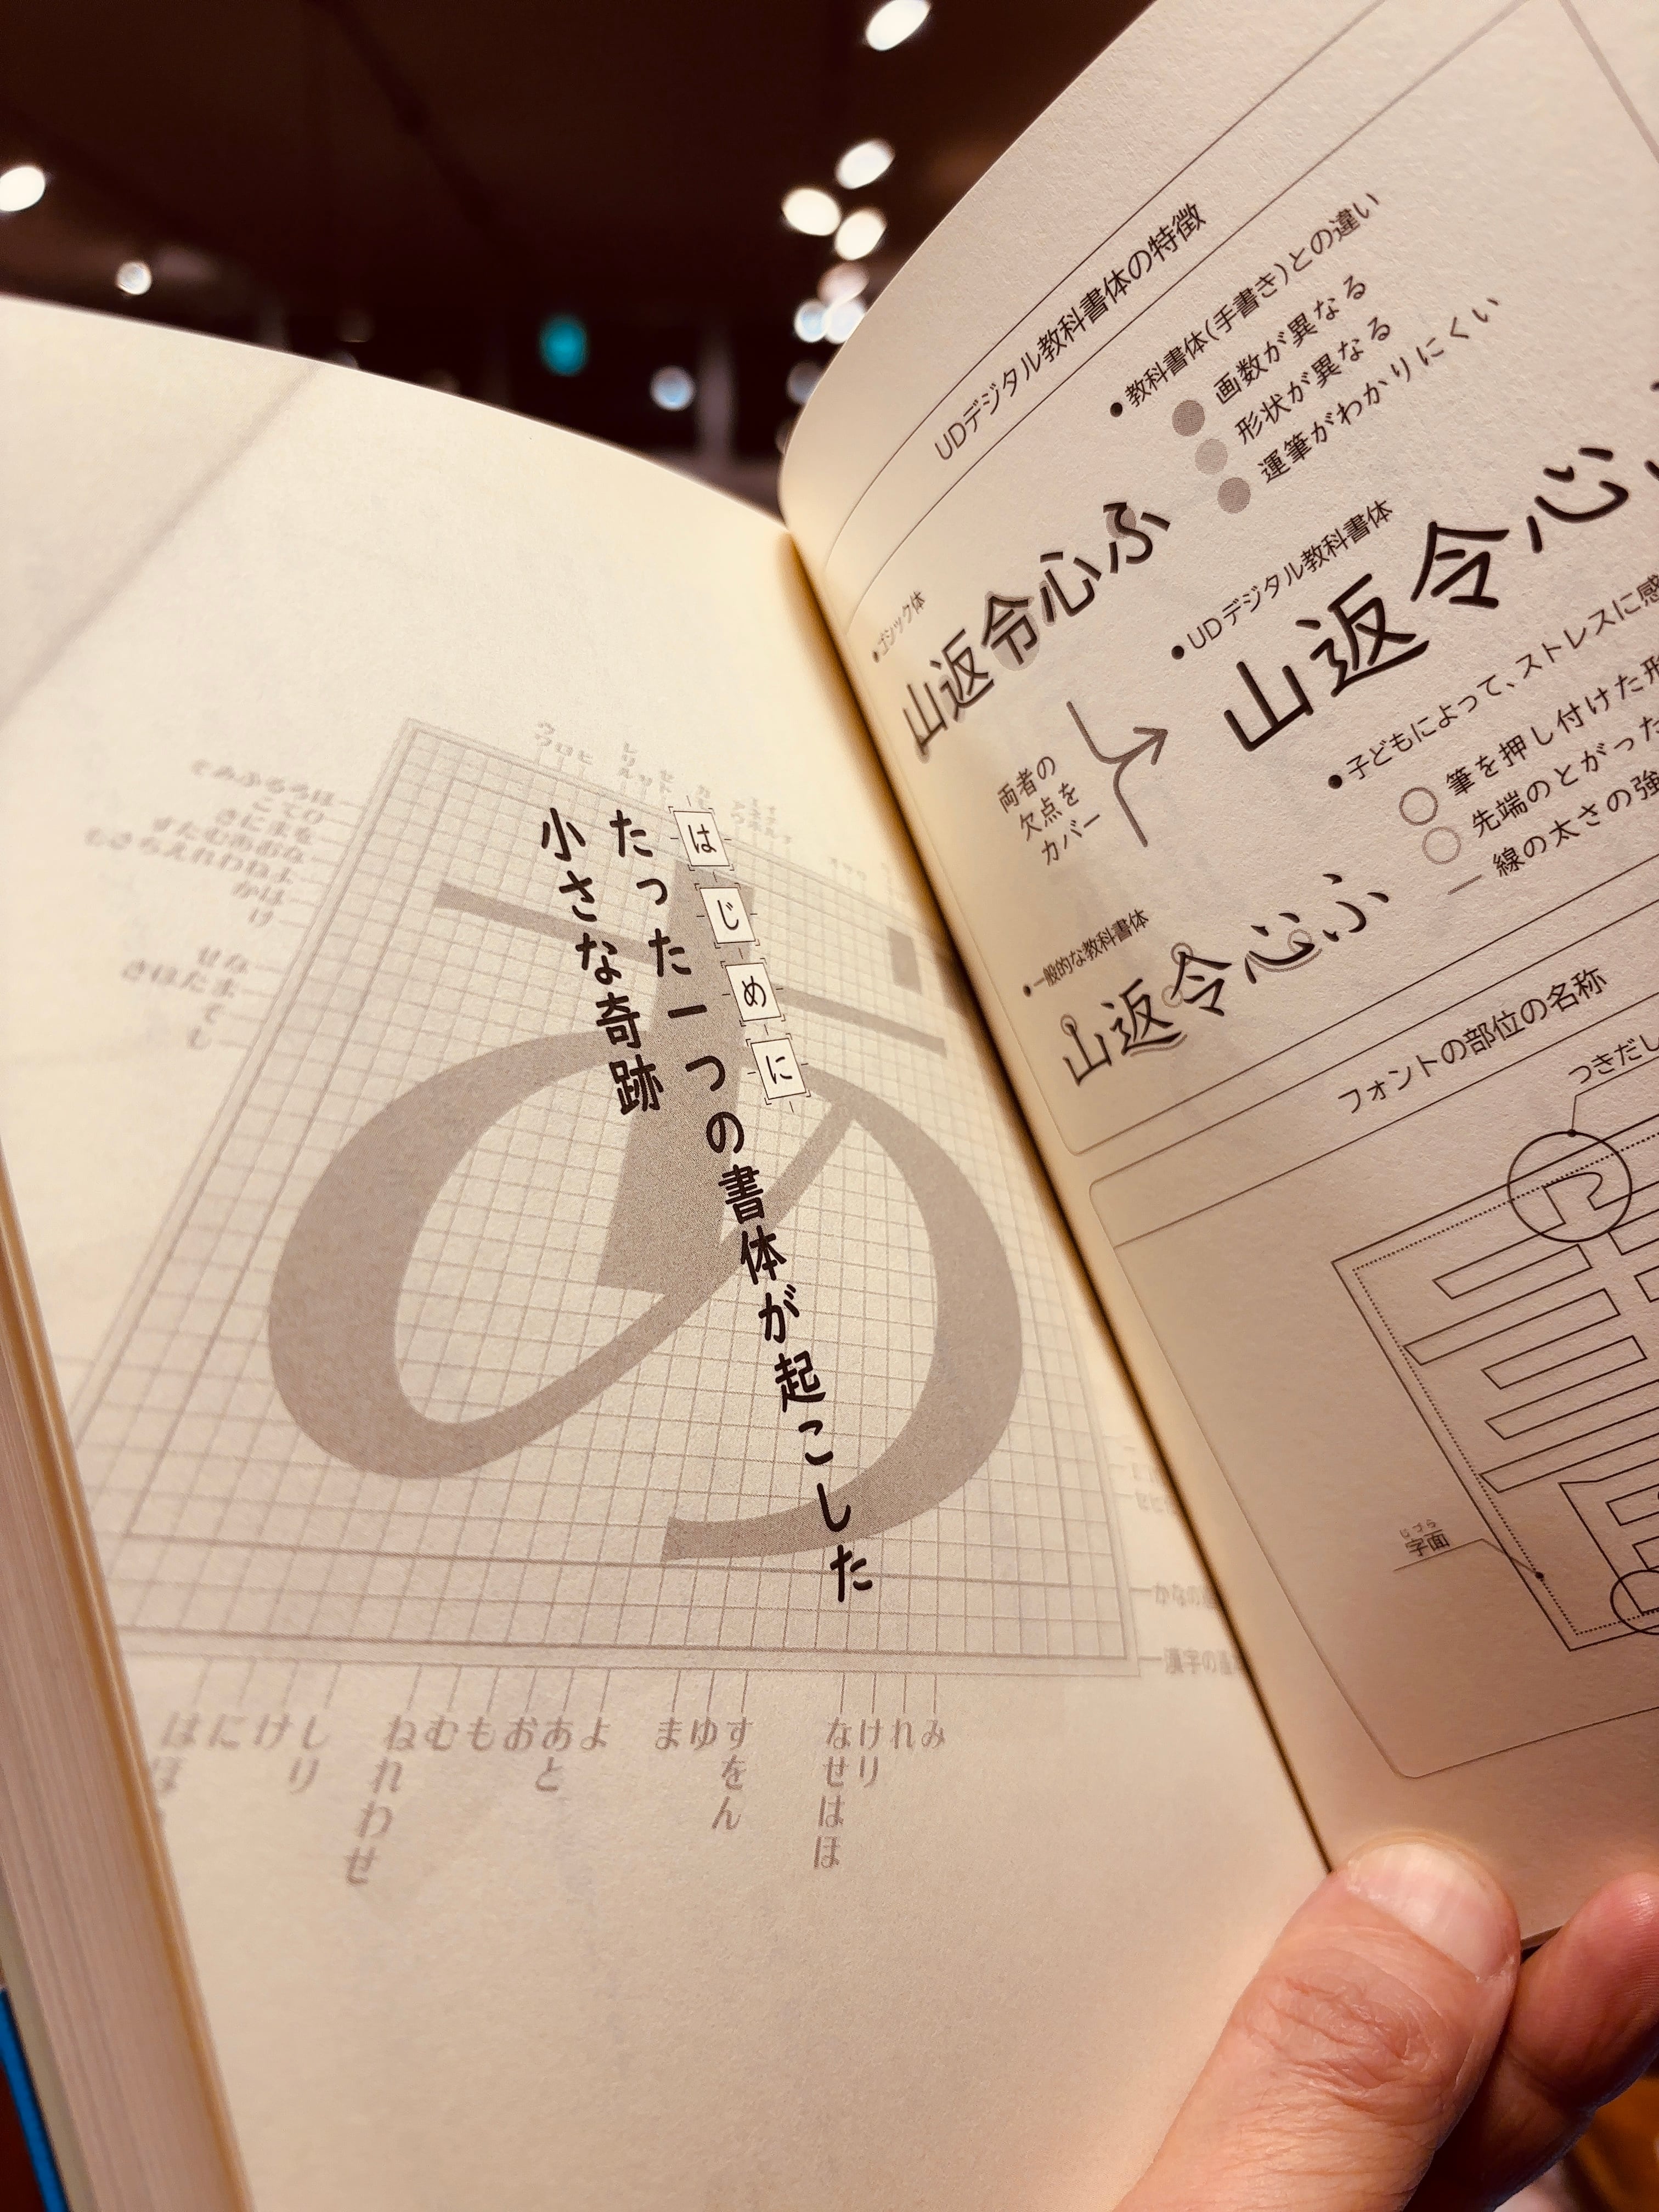 UDデジタル教科書体の特徴
●教科書体(手書き)との違い
画数が異なる
形状が異なる
運筆がわかりにくい
●ゴシック体
山返令心ふ
●UDデジタル教科書体
山返令心
両者の
欠点を
カバー
●子どもによって、ストレスに感
筆を押し付けた形
先端のとがった
線の太さの強
●一般的な教科書体
山返令心ふ
フォントの部位の名称
つきだし
じづら
字面
はじめに
たった一つの書体が起こした
小さな奇跡
かなの
漢字の基
はにけし
り
ねむもおあよ
れ
わ
せ
と
まゆす
を
ん
なけれみ
せり
は
ほ